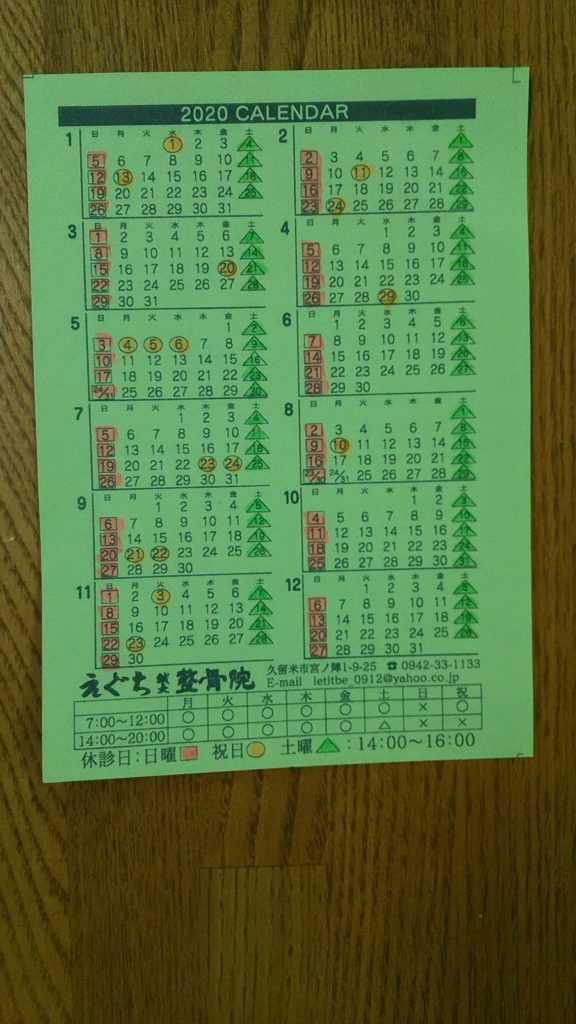 2020 CALENDAR
1
日 月 火 水 木 金 土
1 2 3 4
5 6 7 8 9 10 11
12 13 14 15 16 17 18
19 20 21 22 23 24 25
26 27 28 29 30 31
2
日 月 火 水 木 金 土
1
2 3 4 5 6 7 8
9 10 11 12 13 14 15
16 17 18 19 20 21 22
23 24 25 26 27 28 29
3
日 月 火 水 木 金 土
1 2 3 4 5 6 7
8 9 10 11 12 13 14
15 16 17 18 19 20 21
22 23 24 25 26 27 28
29 30 31
4
日 月 火 水 木 金 土
1 2 3 4
5 6 7 8 9 10 11
12 13 14 15 16 17 18
19 20 21 22 23 24 25
26 27 28 29 30
5
日 月 火 水 木 金 土
1 2
3 4 5 6 7 8 9
10 11 12 13 14 15 16
17 18 19 20 21 22 23
24/31 25 26 27 28 29 30
6
日 月 火 水 木 金 土
1 2 3 4 5 6
7 8 9 10 11 12 13
14 15 16 17 18 19 20
21 22 23 24 25 26 27
28 29 30
7
日 月 火 水 木 金 土
1 2 3 4
5 6 7 8 9 10 11
12 13 14 15 16 17 18
19 20 21 22 23 24 25
26 27 28 29 30 31
8
日 月 火 水 木 金 土
1
2 3 4 5 6 7 8
9 10 11 12 13 14 15
16 17 18 19 20 21 22
23/30 24/31 25 26 27 28 29
9
日 月 火 水 木 金 土
1 2 3 4 5
6 7 8 9 10 11 12
13 14 15 16 17 18 19
20 21 22 23 24 25 26
27 28 29 30
10
日 月 火 水 木 金 土
1 2 3
4 5 6 7 8 9 10
11 12 13 14 15 16 17
18 19 20 21 22 23 24
25 26 27 28 29 30 31
11
日 月 火 水 木 金 土
1 2 3 4 5 6 7
8 9 10 11 12 13 14
15 16 17 18 19 20 21
22 23 24 25 26 27 28
29 30
12
日 月 火 水 木 金 土
1 2 3 4 5
6 7 8 9 10 11 12
13 14 15 16 17 18 19
20 21 22 23 24 25 26
27 28 29 30 31
えぐち 整骨院
久留米市宮ノ陣1-9-25 ☎ 0942-33-1133
E-mail letitbe_0912@yahoo.co.jp
月 火 水 木 金 土 日 祝
7:00〜12:00 ○ ○ ○ ○ ○ ○ × ○
14:00〜20:00 ○ ○ ○ ○ ○ △ × ×
休診日:日曜□ 祝日○ 土曜△:14:00〜16:00